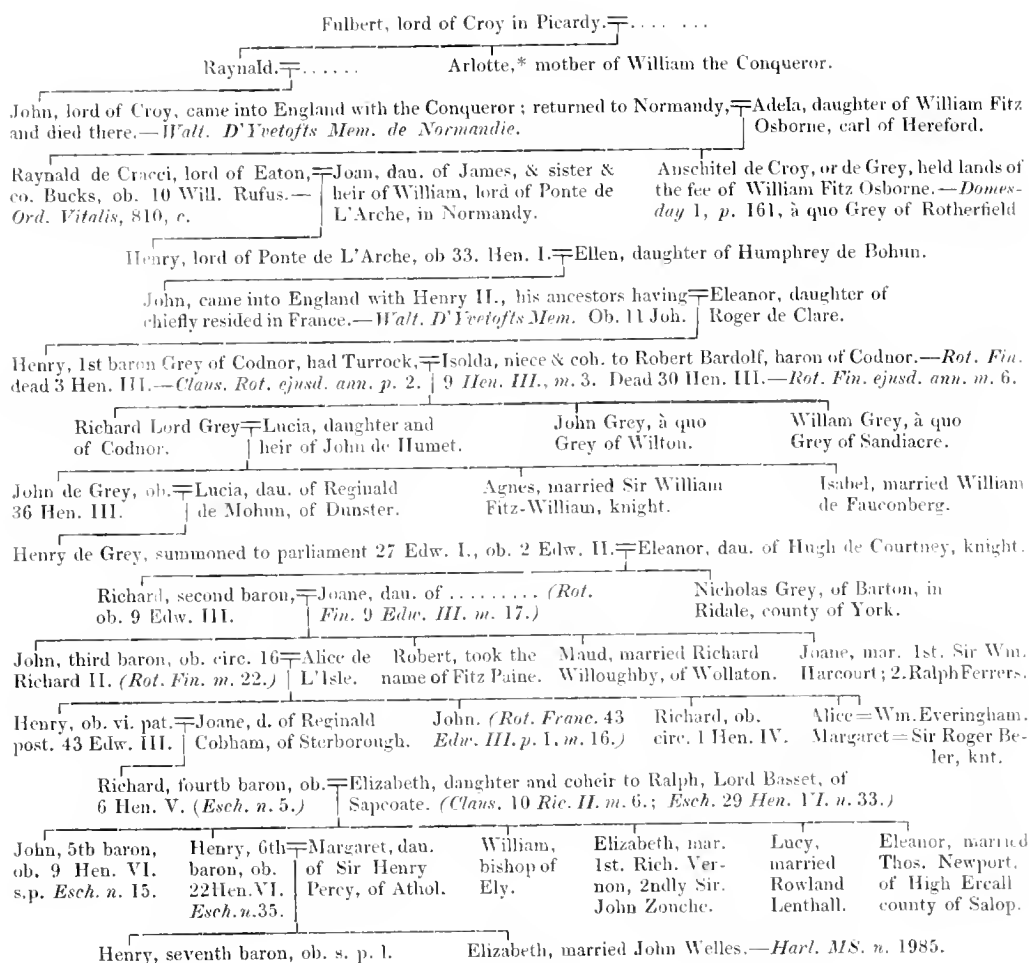 Fulbert, lord of Croy in Picardy.=. . . . . . .
Raynald.=. . . . . .
Arlotte,* mother of William the Conqueror.
John, lord of Croy, came into England with the Conqueror ; returned to Normandy,
and died there.—Walt. D'Yvetofts Mem. de Normandie.
=Adela, daughter of William Fitz
Osborne, earl of Hereford.
Raynald de Cracci, lord of Eaton,
co. Bucks, ob. 10 Will. Rufus.—
Ord. Vitalis, 810, c.
=Joan, dau. of James, & sister &
heir of William, lord of Ponte de
L'Arche, in Normandy.
Anschitel de Croy, or de Grey, held lands of
the fee of William Fitz Osborne.—Domes-
day 1, p. 161, à quo Grey of Rotherfield
Henry, lord of Ponte de L'Arche, ob 33. Hen. I.=Ellen, daughter of Humphrey de Bohun.
John, came into England with Henry II., his ancestors having
chiefly resided in France.—Walt. D'Yvetofts Mem. Ob. 11 Joh.
=Eleanor, daughter of
Roger de Clare.
Henry, 1st baron Grey of Codnor, had Turrock,
dead 3 Hen. III.—Claus. Rot. ejusd. ann. p. 2.
=Isolda, niece & coh. to Robert Bardolf, baron of Codnor.—Rot. Fin.
9 Hen. III., m. 3. Dead 30 Hen. III.—Rot. Fin. ejusd. ann. m. 6.
Richard Lord Grey
of Codnor.
=Lucia, daughter and
heir of John de Humet.
John Grey, à quo
Grey of Wilton.
Willam Grey, à quo
Grey of Sandiacre.
John de Grey, ob.
36 Hen. III.
=Lucia, dau. of Reginald
de Mohun, of Dunster.
Agnes, married Sir William
Fitz-William, knight.
Isabel, married William
de Fauconberg.
Henry de Grey, summoned to parliament 27 Edw. I., ob. 2 Edw. II.=Eleanor, dau. of Hugh de Courtney, knight.
Richard, second baron,
ob. 9 Edw. III.
=Joane, dau. of ......... (Rot.
Fin. 9 Edw. III. m. 17.)
Nicholas Grey, of Barton, in
Ridale, county of York.
John, third baron, ob. circ. 16
Richard II. (Rot. Fin. m. 22.)
=Alice de
L'Isle.
Robert, took the
name of Fitz Paine.
Maud, married Richard
Willoughby, of Wollaton.
Joane, mar. 1st. Sir Wm.
Harcourt; 2. Ralph Ferrers.
Henry, ob. vi. pat.
post. 43 Edw. III.
=Joane, d. of Reginald
Cobham, of Sterborough.
John. (Rot. Franc. 43
Edw. III. p. 1. m. 16.)
Richard, ob.
circ. 1 Hen. IV.
Alice=Wm. Everingham.
Margaret=Sir Roger Be-
ler, knt.
Richard, fourth baron, ob.
6 Hen. V. (Esch. n. 5.)
=Elizabeth, daughter and coheir to Ralph, Lord Basset, of
Sapcoate. (Claus. 10 Ric. II. m. 6.; Esch. 29 Hen. VI. n. 33.)
John, 5th baron,
ob. 9 Hen. VI.
s.p. Esch. n. 15.
Henry, 6th
baron, ob.
22 Hen. VI.
Esch. n. 35.
=Margaret, dau.
of Sir Henry
Percy, of Athol.
William,
bishop of
Ely.
Elizabeth, mar.
1st. Rich. Ver-
non, 2ndly Sir.
John Zouche.
Lucy,
married
Rowland
Lenthall.
Eleanor, married
Thos. Newport.
of High Ercall
county of Salop.
Henry, seventh baron, ob. s. p. l.
Elizabeth, married John Welles.—Harl. MS. n. 1985.